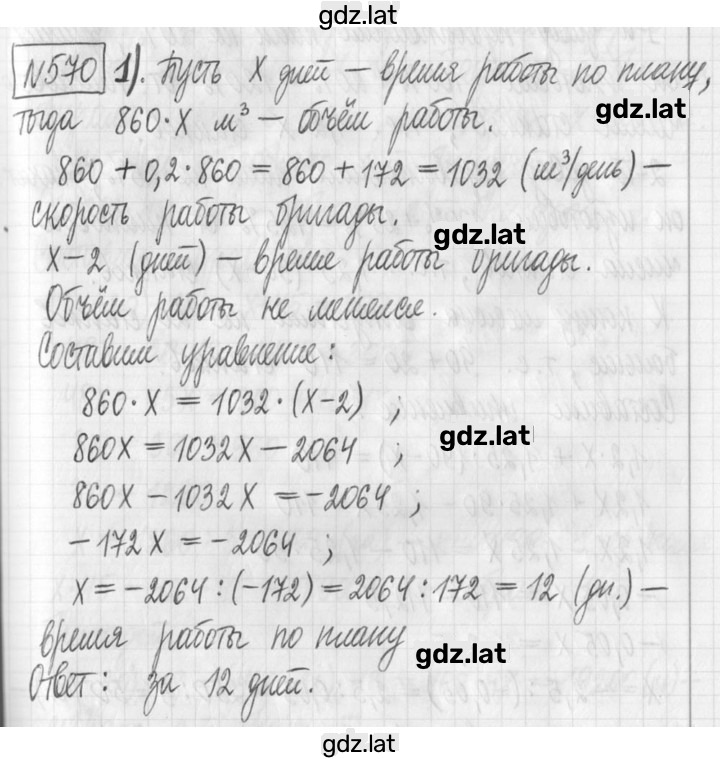 gdz.lat
№570 1). Пусть x дней – время работы по плану,
тогда 860·x м³ – объём работы.
gdz.lat
860 + 0,2·860 = 860 + 172 = 1032 (м³/день) –
скорость работы бригады.
gdz.lat
x–2 (дней) – время работы бригады.
Объём работы не менялся.
Составим уравнение:
860·x = 1032·(x–2) ;
gdz.lat
860x = 1032x – 2064 ;
860x – 1032x = –2064 ;
–172x = –2064 ;
x = –2064 : (–172) = 2064 : 172 = 12 (дн.) –
время работы по плану
gdz.lat
Ответ: за 12 дней.
gdz.lat